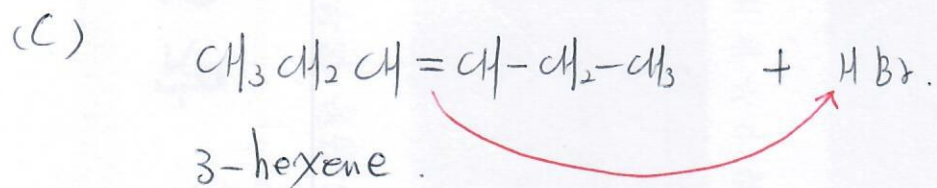 (C) CH3CH2CH=CH-CH2-CH3 + HBr.
3-hexene.